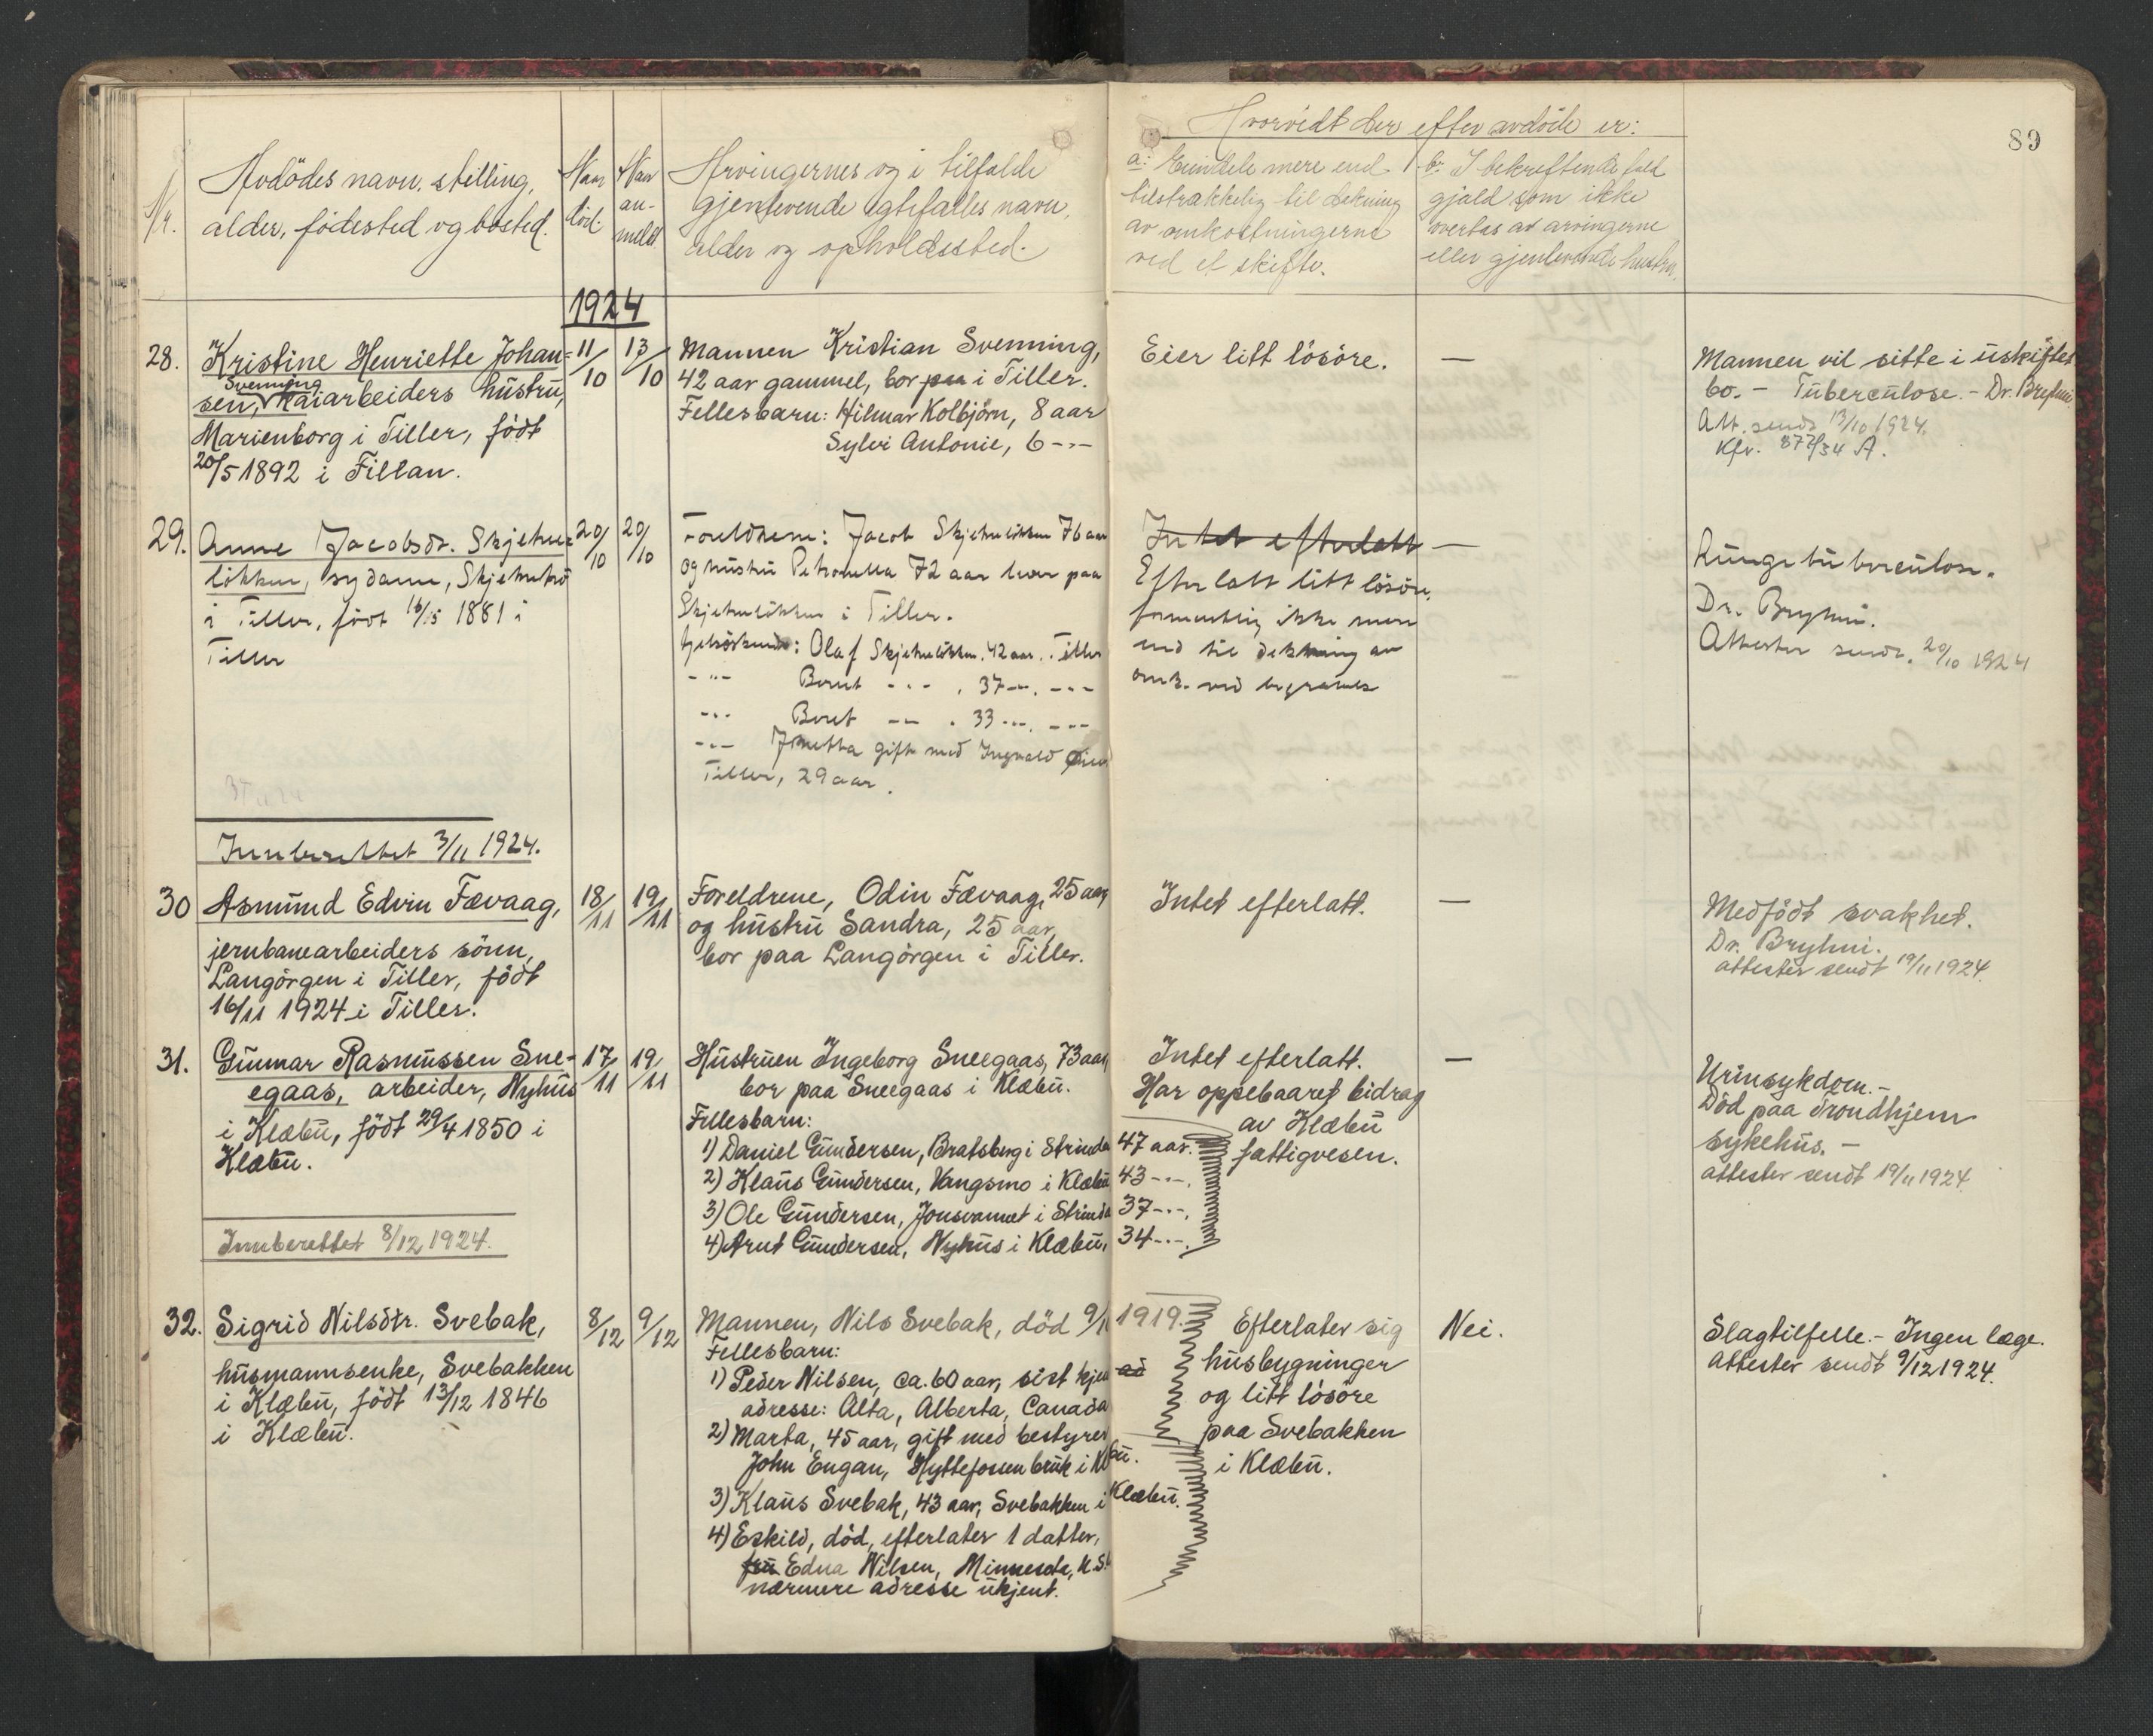 89
Hvorvidt der efter avdöde er:
Nr.
Avdödes navn, stilling,
alder, födested og bosted.
Naar
död.
Naar
an-
meldt
Arvingernes og i tilfælde
gjenlevende egtefælles navn,
alder og opholdssted.
a: Eiendele mere end
tilstrækkelig til dekning
av omkostningerne
ved et skifte.
b: I bekreftende fald
gjæld som ikke
overtas av arvingerne
eller gjenlevende hustru.
1924
28.
Kristine Henriette Johan-
Svenning
sen, kaiarbeiders hustru,
Marienborg i Tiller, födt
20/5 1892 i Fillan.
11/10
13/10
Mannen Kristian Svenning,
42 aar gammel, bor paa i Tiller.
Fellesbarn: Hilmar Kolbjörn, 8 aar
Sylvi Antonie, 6 -"-
Eier litt lösöre.
—
Mannen vil sitte i uskiftet
bo. - Tuberculose. - Dr. Bryhni.
Att. sendt 13/10 1924.
Kfr. 877/34 A.
29.
Anne Jacobsdr. Skjetne-
lökken, sydame, Skjetnelök
i Tiller, födt 16/5 1881 i
Tiller
20/10
20/10
Foreldrene: Jacob Skjetnelökken 76 aar
og hustru Petronella 72 aar bor paa
Skjetnelökken i Tiller.
Helsöskend: Olaf Skjetnelökken. 42 aar. Tiller
-"- Bernt -"- . 37 -"-. -"-
-"- Beret -"- . 33 -"-. -"-
-"- Jonetta gift med Ingvald
Tiller, 29 aar.
Intet efterlatt
Efterlatt litt lösöre,
formentlig ikke mere
end til dekning av
omk. ved begravels
—
Lungetuberculose.
Dr. Bryhni.
Attester sendt. 20/10 1924
Innberettet 3/11 1924.
30
Asmund Edvin Fævaag,
jernbanearbeiders sönn,
Langörgen i Tiller, födt
16/11 1924 i Tiller.
18/11
19/11
Foreldrene, Odin Fævaag, 25 aar,
og hustru Sandra, 25 aar,
bor paa Langörgen i Tiller.
Intet efterlatt.
—
Medfödt svakhet.
Dr. Bryhni.
attester sendt 19/11 1924.
31.
Gunnar Rasmussen Sne-
egaas, arbeider, Nyhus
i Klæbu, födt 29/4 1850 i
Klæbu.
17/11
19/11
Hustruen Ingeborg Sneegaas, 73 aar,
bor paa Sneegaas i Klæbu.
Fellesbarn:
1) Daniel Gundersen, Bratsberg i Strinda 47 aar.
2) Klaus Gundersen, Vangsmo i Klæbu 43 -"-.
3) Ole Gundersen, Jonsvannet i Strinda 37 -"-.
4) Arnt Gundersen, Nyhus i Klæbu, 34 -"-.
Intet efterlatt.
Har oppebaaret bidrag
av Klæbu
fattigvesen.
—
Urinsykdom. -
Död paa Trondhjem
sykehus. -
attester sendt 19/11 1924.
Innberettet 8/12 1924.
32.
Sigrid Nilsdtr. Svebak,
husmannsenke, Svebakken
i Klæbu, födt 13/12 1846
i Klæbu.
8/12
9/12
Mannen, Nils Svebak, död 9/11 1919.
Fellesbarn:
1) Peder Nilsen, ca. 60 aar, sist kjen ad
adresse: Alta, Alberta, Canada
2) Marta, 45 aar, gift med bestyrer
John Engan, Hyttefossen bruk i Klæbu.
3) Klaus Svebak, 43 aar, Svebakken i Klæbu.
4) Eskild, död, efterlater 1 datter,
fru Edna Nilsen, Minnesota, U.S.
nærmere adresse ukjent.
Efterlater sig
husbygninger
og litt lösöre
paa Svebakken
i Klæbu.
Nei.
Slagtilfelle. - Ingen læge.
attester sendt 9/12 1924.